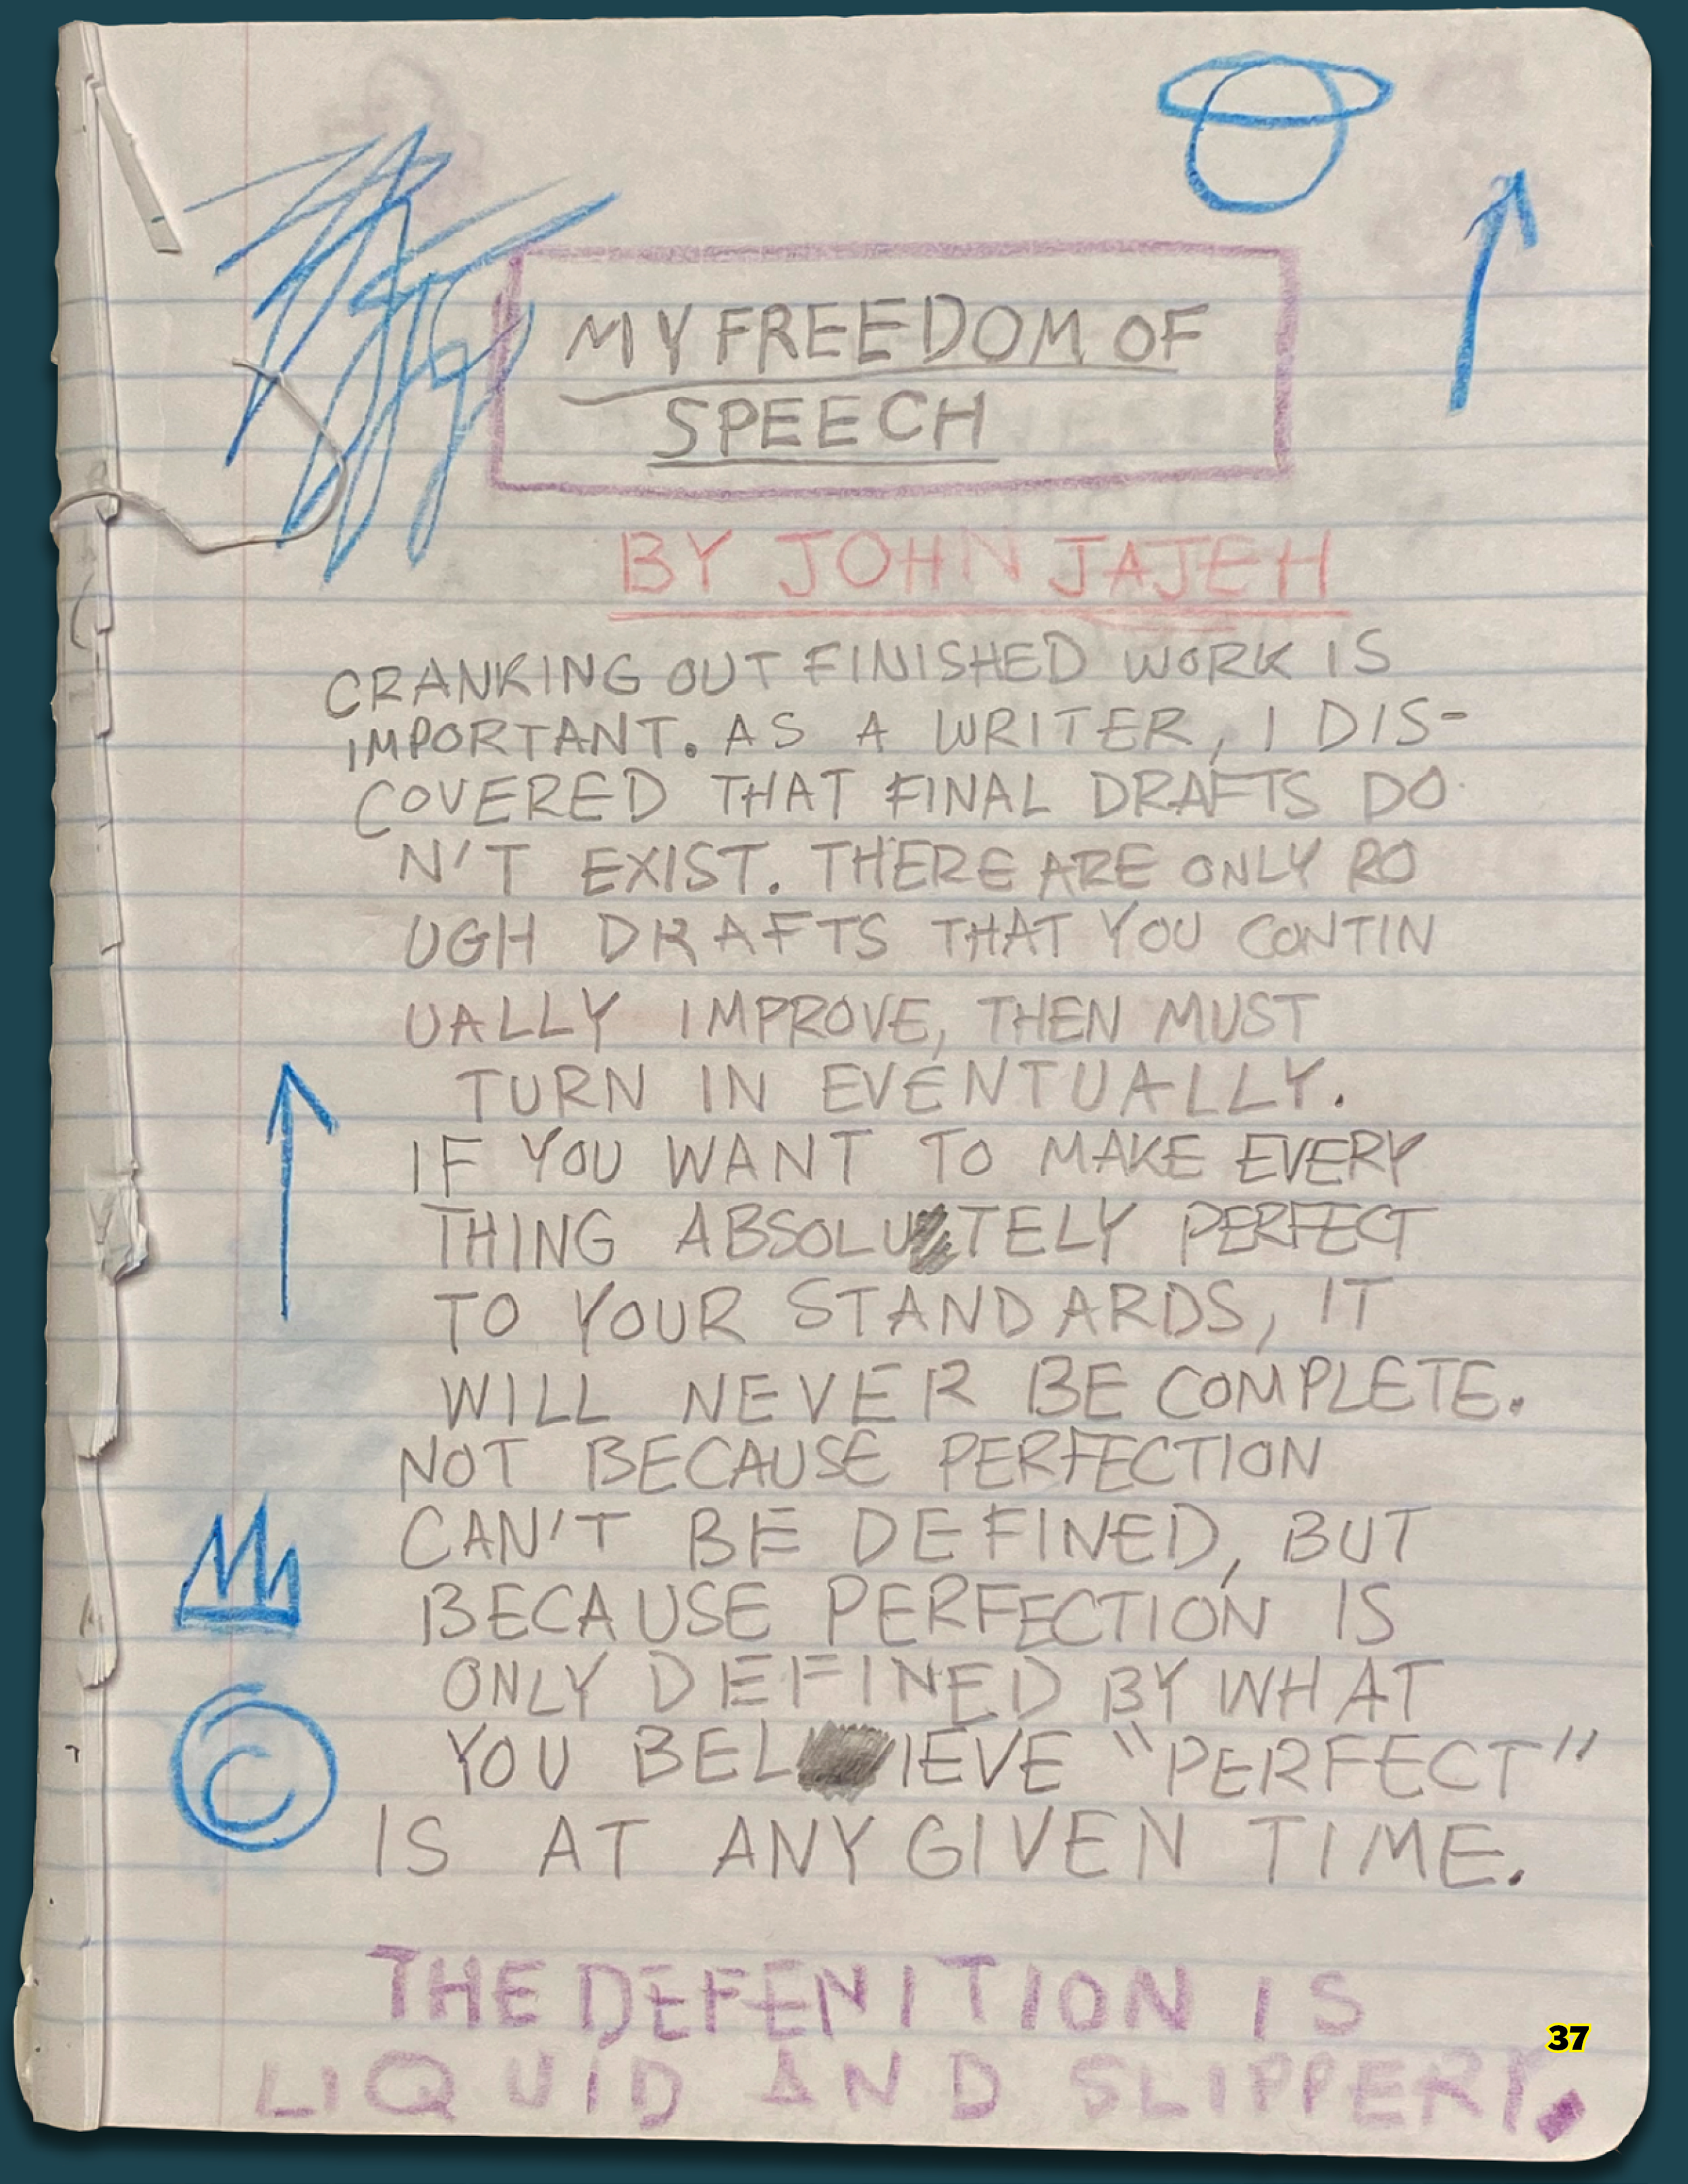 MY FREEDOM OF
SPEECH
BY JOHN JAJEH
CRANKING OUT FINISHED WORK IS
IMPORTANT. AS A WRITER, I DIS-
COVERED THAT FINAL DRAFTS DO
N'T EXIST. THERE ARE ONLY RO
UGH DRAFTS THAT YOU CONTIN
UALLY IMPROVE, THEN MUST
TURN IN EVENTUALLY.
IF YOU WANT TO MAKE EVERY
THING ABSOLUTELY PERFECT
TO YOUR STANDARDS, IT
WILL NEVER BE COMPLETE.
NOT BECAUSE PERFECTION
CAN'T BE DEFINED, BUT
BECAUSE PERFECTION IS
ONLY DEFINED BY WHAT
YOU BELIEVE "PERFECT"
IS AT ANY GIVEN TIME.
©
THE DEFENITION IS
LIQUID AND SLIPPERY.
37